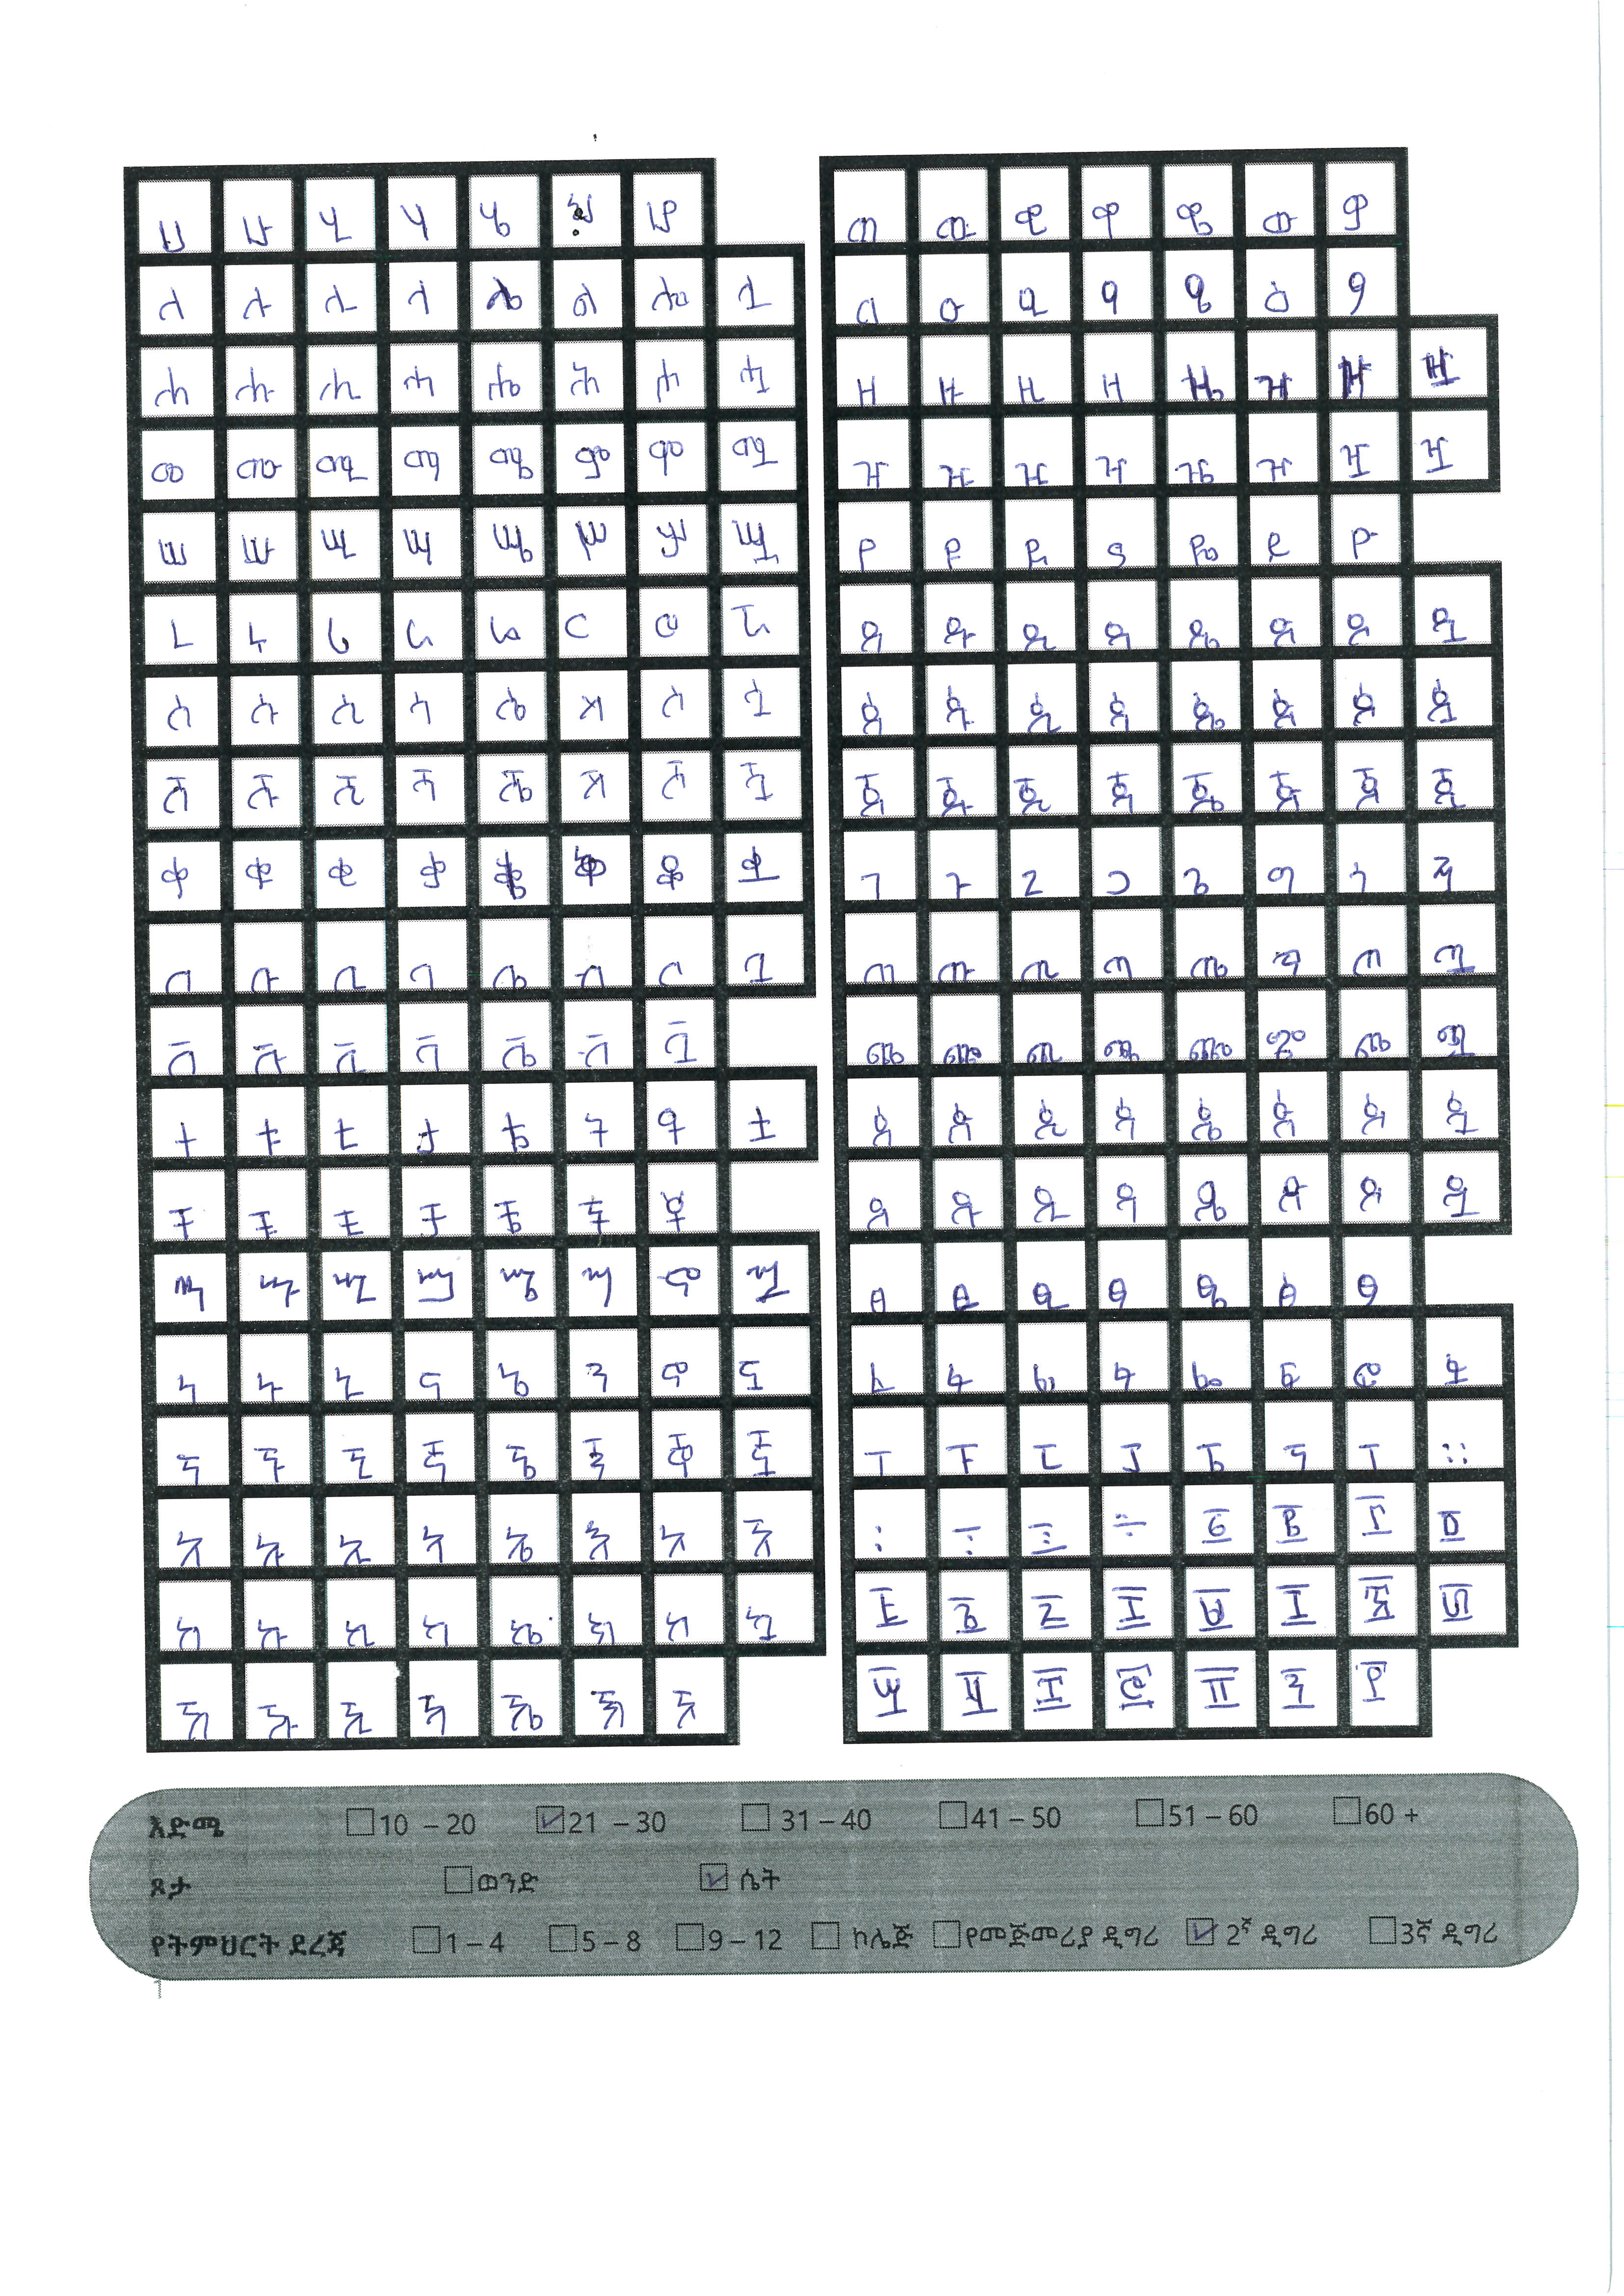 ሀ ሁ ሂ ሃ ሄ ሆ
ለ ሉ ሊ ላ ሌ ል ሎ ሏ
ሐ ሑ ሒ ሓ ሔ ሕ ሖ ሗ
መ ሙ ሚ ማ ሜ ም ሞ ሟ
ሠ ሡ ሢ ሣ ሤ ሥ ሦ ሧ
ረ ሩ ሪ ራ ሬ ር ሮ ሯ
ሰ ሱ ሲ ሳ ሴ ስ ሶ ሷ
ሸ ሹ ሺ ሻ ሼ ሽ ሾ ሿ
ቀ ቁ ቂ ቃ ቄ ቅ ቆ ቋ
በ ቡ ቢ ባ ቤ ብ ቦ ቧ
ቨ ቩ ቪ ቫ ቬ ቭ ቯ
ተ ቱ ቲ ታ ቴ ት ቶ ቷ
ቸ ቹ ቺ ቻ ቼ ች ቾ
ኀ ኁ ኂ ኃ ኄ ኅ ኆ ኋ
ነ ኑ ኒ ና ኔ ን ኖ ኗ
ኘ ኙ ኚ ኛ ኜ ኝ ኞ ኟ
አ ኡ ኢ ኣ ኤ እ ኦ ኧ
ከ ኩ ኪ ካ ኬ ክ ኮ ኳ
ኸ ኹ ኺ ኻ ኼ ኽ ኾ
ወ ዉ ዊ ዋ ዌ ው ዎ
ዐ ዑ ዒ ዓ ዔ ዕ ዖ
ዘ ዙ ዚ ዛ ዜ ዝ ዞ ዟ
ዠ ዡ ዢ ዣ ዤ ዥ ዦ ዧ
የ ዩ ዪ ያ ዬ ይ ዮ
ደ ዱ ዲ ዳ ዴ ድ ዶ ዷ
ጀ ጁ ጂ ጃ ጄ ጅ ጆ ጇ
ገ ጉ ጊ ጋ ጌ ግ ጎ ጓ
ጠ ጡ ጢ ጣ ጤ ጥ ጦ ጧ
ጨ ጩ ጪ ጫ ጬ ጭ ጮ ጯ
ጰ ጱ ጲ ጳ ጴ ጵ ጶ ጷ
ጸ ጹ ጺ ጻ ጼ ጽ ጾ ጿ
ፀ ፁ ፂ ፃ ፄ ፅ ፆ
ፈ ፉ ፊ ፋ ፌ ፍ ፎ ፏ
ፐ ፑ ፒ ፓ ፔ ፕ ፖ ።
፡ ፣ ፤ ፥ ፩ ፪ ፫ ፬
፭ ፮ ፯ ፰ ፱ ፲ ፳ ፴
፵ ፶ ፷ ፸ ፹ ፺ ፻
እድሜ 10 – 20 21 – 30 31 – 40 41 – 50 51 – 60 60 +
ጾታ ወንድ ሴት
የትምህርት ደረጃ 1 – 4 5 – 8 9 – 12 ኮሌጅ የመጀመሪያ ዲግሪ 2ኛ ዲግሪ 3ኛ ዲግሪ